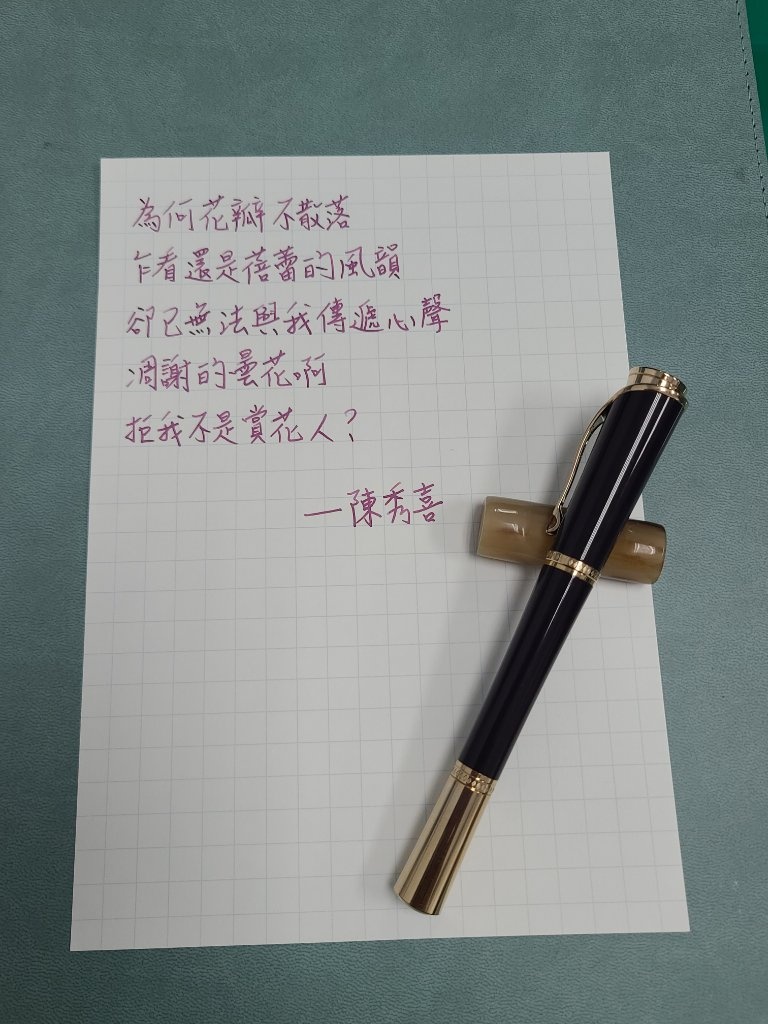 為何花瓣不散落
乍看還是蓓蕾的風韻
卻已無法與我傳遞心聲
凋謝的曇花啊
拒我不是賞花人？
—陳秀喜